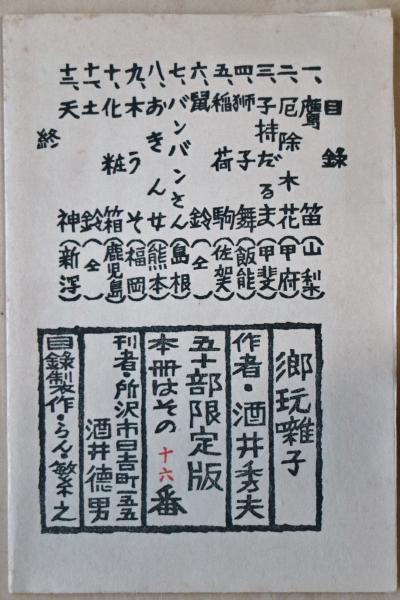 目録
一、鷹笛(山梨)
二、厄除木花(甲府)
三、子持だるま(甲斐)
四、獅子舞(飯能)
五、稲荷駒(佐賀)
六、鼠鈴(仝)
七、バンバンさん(島根)
八、おきん女(熊本)
九、木うそ(福岡)
十、化粧箱(鹿児島)
十一、土鈴(仝)
十二、天神(新泻)
終
郷玩囃子
作者・酒井秀夫
五十部限定版
本冊はその十六番
刊者・所沢市日吉町一五五
酒井徳男
目録製作・らん・繁之